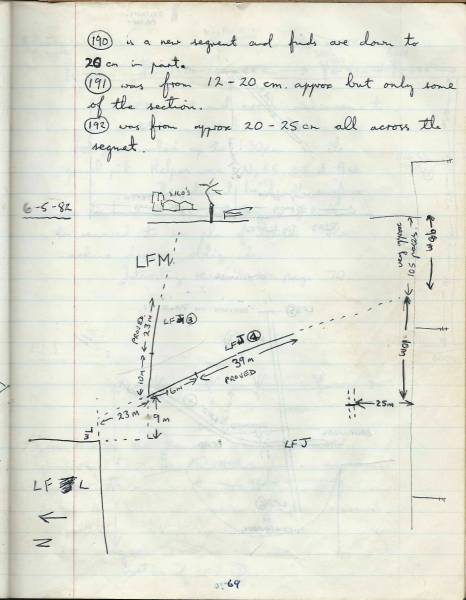 (190) is a new segment and finds are down to
20 cm in part.
(191) was from 12-20 cm. approx but only some
of the section.
(192) was from approx 20-25 cm all across the
segmet.
6-5-82
SILO'S
LFM
LFJ (3)
PROVED
23m
10m
LFJ (4)
39m
PROVED
16m
23m
9m
98m
105 paces
110m
25m
LFJ
LF L
N
69